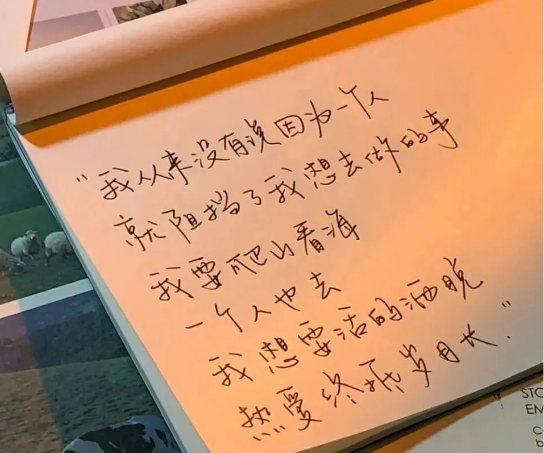 "我从来没有说因为一个人
就阻挡了我想去做的事
我要爬山看海
一个人也去
我想要活的洒脱
热爱终抵岁月长."
STC
EM